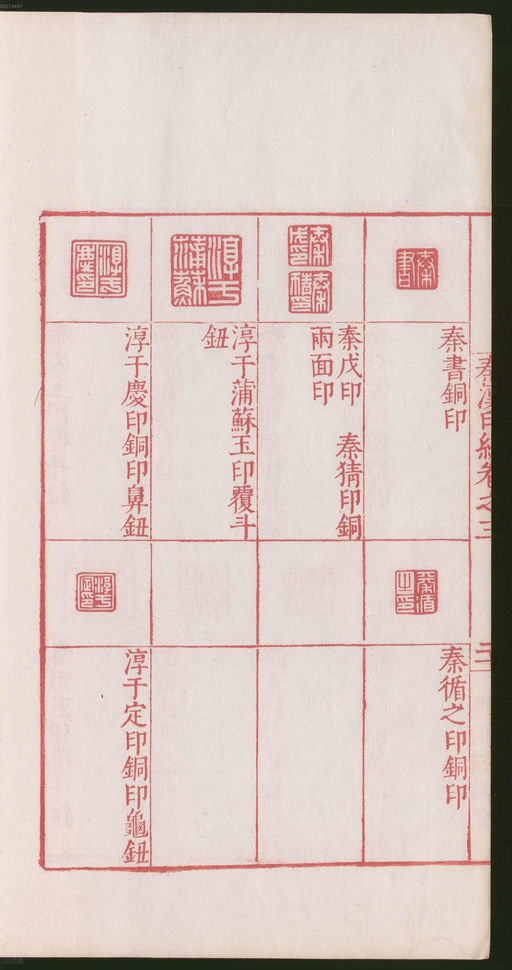 秦漢印統卷之三
秦書銅印
秦戊印 秦猜印銅
兩面印
淳于蒲蘇玉印覆斗
鈕
淳于慶印銅印鼻鈕
秦循之印銅印
淳于定印銅印龜鈕
00073447